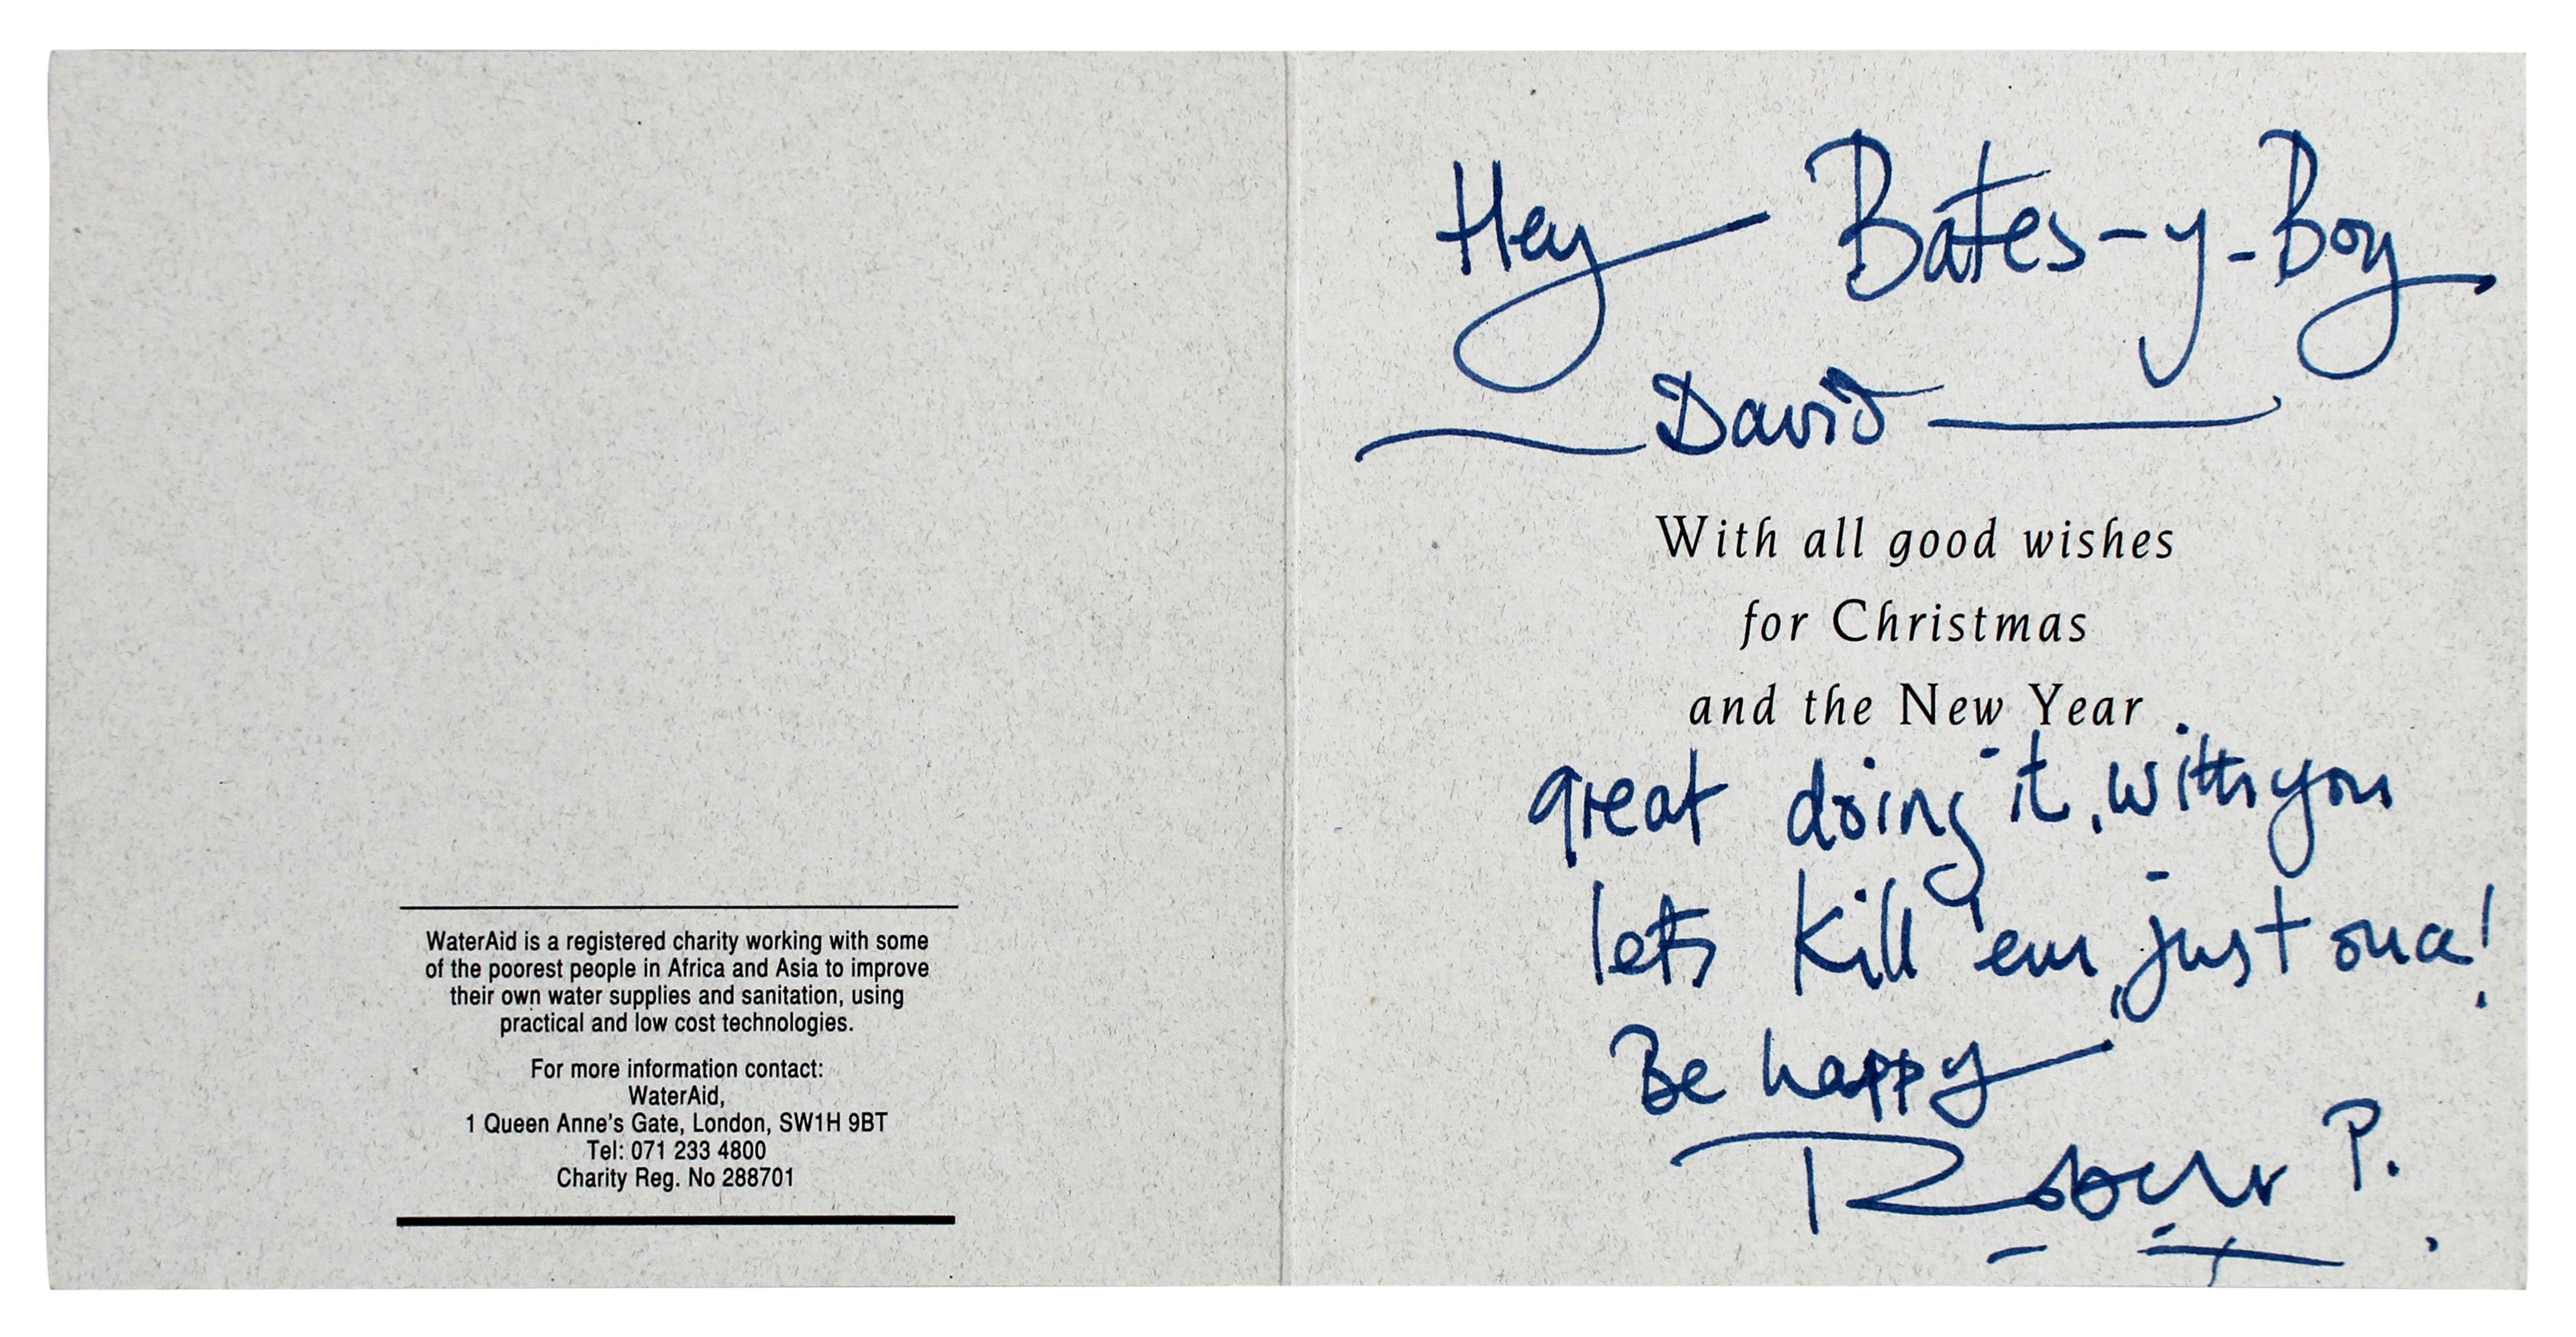 WaterAid is a registered charity working with some
of the poorest people in Africa and Asia to improve
their own water supplies and sanitation, using
practical and low cost technologies.
For more information contact:
WaterAid,
1 Queen Anne's Gate, London, SW1H 9BT
Tel: 071 233 4800
Charity Reg. No 288701
Hey Bates-y-Boy
David
With all good wishes
for Christmas
and the New Year
great doing it, with you
lets kill 'em, just once!
Be happy
Robert P.